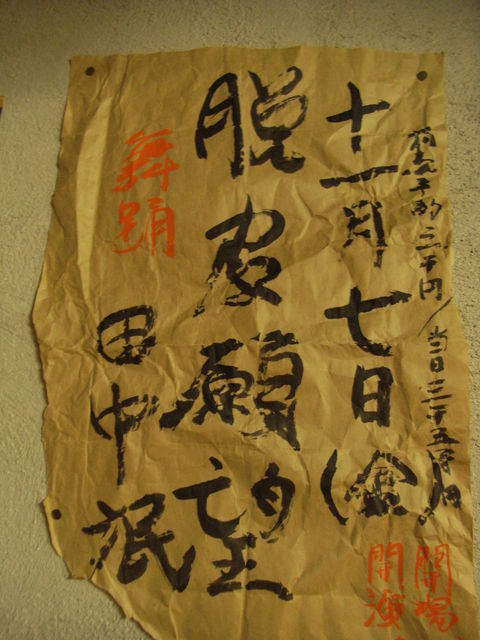 予約三千円/当日三千五百円
開場
開演
十一月七日(金)
脱家願望
舞踊
田中泯